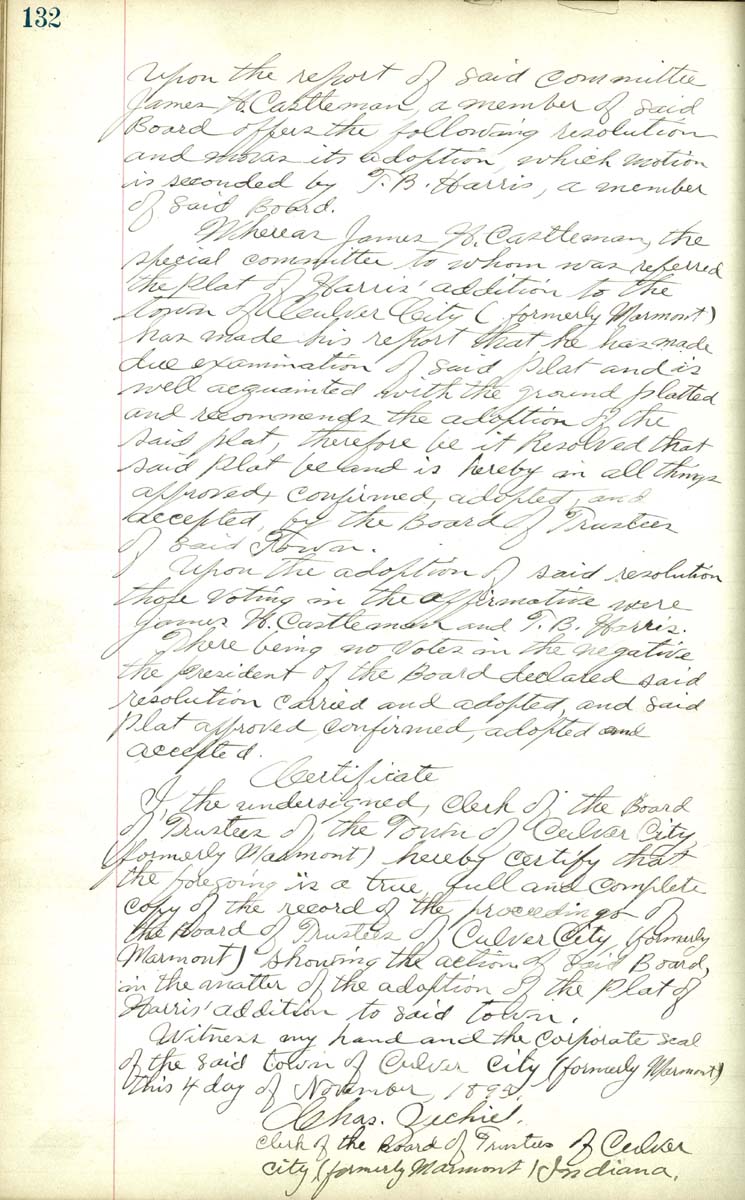 132
Upon the report of said committee
James H. Castleman, a member of said
Board offers the following resolution
and moves its adoption, which motion
is seconded by T. B. Harris, a member
of said Board.
Whereas James H. Castleman, the
special committee to whom was referred
the Plat of Harris' addition to the
town of Culver City (formerly Marmont)
has made his report that he has made
due examination of said Plat and is
well acquainted with the ground platted
and recommends the adoption of the
said plat, therefore be it Resolved that
said Plat be and is hereby in all things
approved, confirmed, adopted, and
accepted, by the Board of Trustees
of said Town.
Upon the adoption of said resolution
those voting in the affirmative were
James H. Castleman and T. B. Harris.
There being no votes in the negative
the president of the Board declared said
resolution carried and adopted, and said
Plat approved, confirmed, adopted and
accepted.
Certificate
I, the undersigned, Clerk of the Board
of Trustees of the Town of Culver City,
(formerly Marmont) hereby certify that
the foregoing is a true, full and complete
copy of the record of the proceedings of
the Board of Trustees of Culver City (formerly
Marmont) showing the action of said Board,
in the matter of the adoption of the Plat of
Harris' addition to said town.
Witness my hand and the corporate seal
of the said town of Culver City (formerly Marmont)
this 4 day of November,
Chas. Zechiel.
Clerk of the Board of Trustees of Culver
City (formerly Marmont) Indiana.